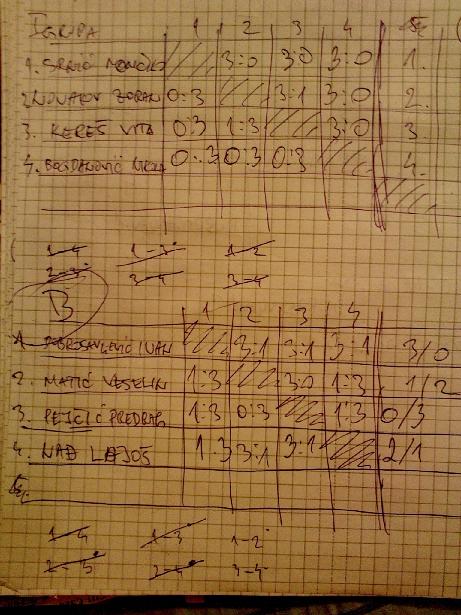 I GRUPA 1 2 3 4
1. SRNIĆ 3:0 3:0 3:0 1.
2. NOVAKOV ZORAN 0:3 3:1 3:0 2.
3. KEREŠ VITA 0:3 1:3 3:0 3.
4. BOGDANOVIĆ 0:3 0:3 0:3 4.
1-4 1-3 1-2
2-3 3-4 3-4
B 1 2 3 4
1. DOBROSAVLJEVIĆ IVAN 3:1 3:1 3:1 3/0
2. MATIĆ VESELIN 1:3 3:0 1:3 1/2
3. PEJČIĆ PREDRAG 1:3 0:3 1:3 0/3
4. NAĐ LAJOŠ 1:3 3:1 3:1 2/1
1-4 1-3 1-2
2-3 2-4 3-4